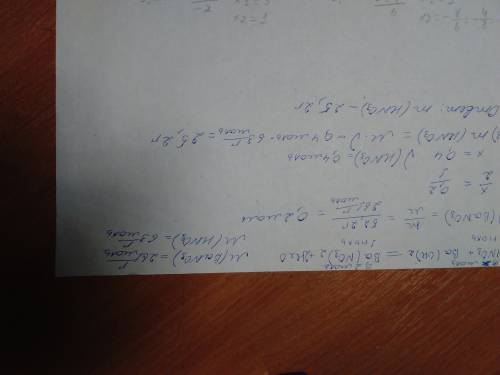 0,2 моль
HNO₃ + Ba(OH)₂ = Ba(NO₃)₂ + 2H₂O
1 моль
M(BaNO₃) = 261 г/моль
M(HNO₃) = 63 г/моль
(BaNO₃) = m/M = 52,2г / 261 г/моль = 0,2 моль
x/2 = 0,2/1
x = 0,4 ν(HNO₃) = 0,4 моль
m(HNO₃) = M·ν = 0,4 моль · 63 г/моль = 25,2г
Ответ: m(HNO₃) – 25,2г